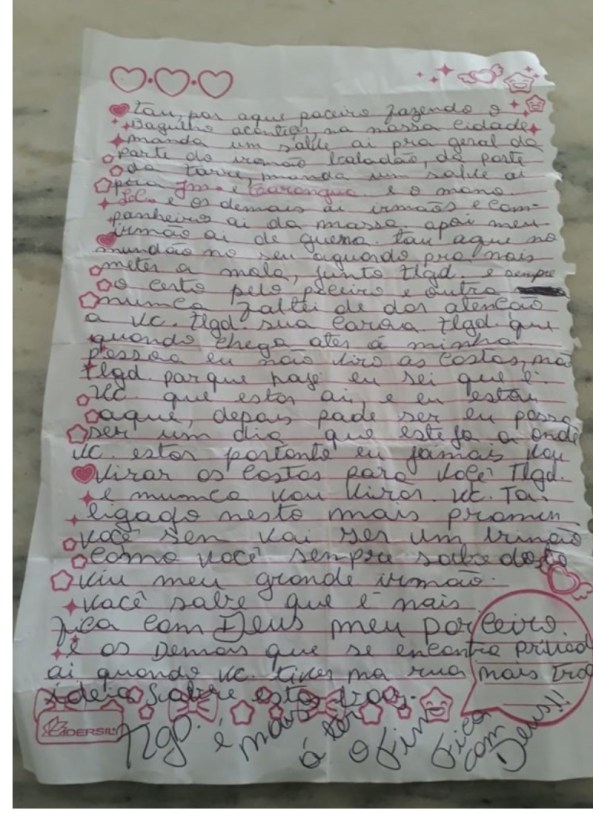 tau, por aqui paceiro fazendo o
Bagulho acontiçer, na nossa cidade
manda um salve ai pra geral da
parte do irmão da parte
da manda um salve ai
para Jm e e o mano
e os demais ai irmãos e com-
panheiro ai da massa apoi meu
irmão ai de guera. tau aqui no
mundão no seu aguardo pra nois
meter a mala, junto tlgd. e senpre
o certo pelo paceiro e outra
nunca faltei de dar atencão
a vc. tlgd. sua caraa tlgd. que
quando chega ates á minha
pessoa eu não viro as costas, não
tlgd. parque eu sei que é
vc. que estar ai, e eu estou
aqui, depais pode ser eu possa
ser um dia que esteja a onde
vc estar portanto eu jamais vou
virar os costas para você tlgd.
e numca vou virar. vc. Ta
ligado nesto mais
você sen vai ser um irmão
como você senpra
viu meu grande irmão.
você sabe que é nois.
fica com Deus meu parceiro.
e os Demais que se encontra privad
ai quando vc. tiver na rua nois tro
ideia sobre
DERSIL
Tlgd. é mais
á ter
o Fim
Fica
com
Deus!!